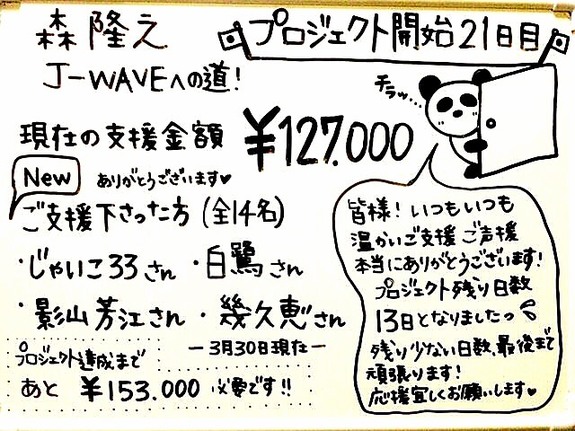 森 隆之
プロジェクト開始21日目
J-WAVEへの道!
チラッ...
現在の支援金額 ¥127.000
New ありがとうございます♥
ご支援下さった方 (全14名)
・じゃいこ33さん ・白鷺さん
・影山芳江さん ・幾久恵さん
ー3月30日現在ー
プロジェクト達成まで
あと ¥153.000 必要です!!
皆様! いつもいつも
温かいご支援 ご声援
本当にありがとうございます!
プロジェクト残り日数
13日となりましたっ
残り少ない日数、最後まで
頑張ります!
応援宜しくお願いします♥